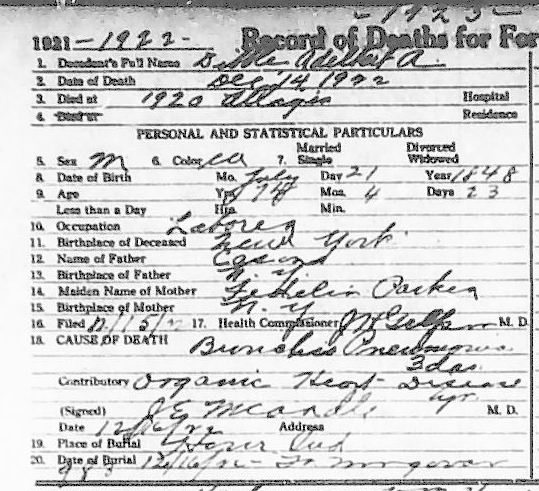 -1923-
1921-1922- Record of Deaths for For
1. Decedent's Full Name Adelbert A.
2. Date of Death Dec 14, 1922
3. Died at 1920 Hospital
4. Died at Residence
PERSONAL AND STATISTICAL PARTICULARS
5. Sex M 6. Color 7. Married Single Divorced Widowed
8. Date of Birth Mo. July Day 21 Year 1848
9. Age Yrs 74 Mos. 4 Days 23
Less than a Day Hrs. Min.
10. Occupation Laborer
11. Birthplace of Deceased New York
12. Name of Father
13. Birthplace of Father N. Y.
14. Maiden Name of Mother Parker
15. Birthplace of Mother N. Y.
16. Filed 12/15/22 17. Health Commissioner M. D.
18. CAUSE OF DEATH Broncho Pneumonia
3 das.
Contributory Organic Heart Disease
yr.
(Signed) J E M. D.
Date Address
19. Place of Burial
20. Date of Burial 12/16/22